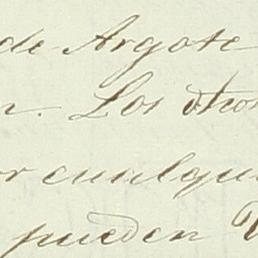 de Argote
n. Los otros
or cualqui
pueden